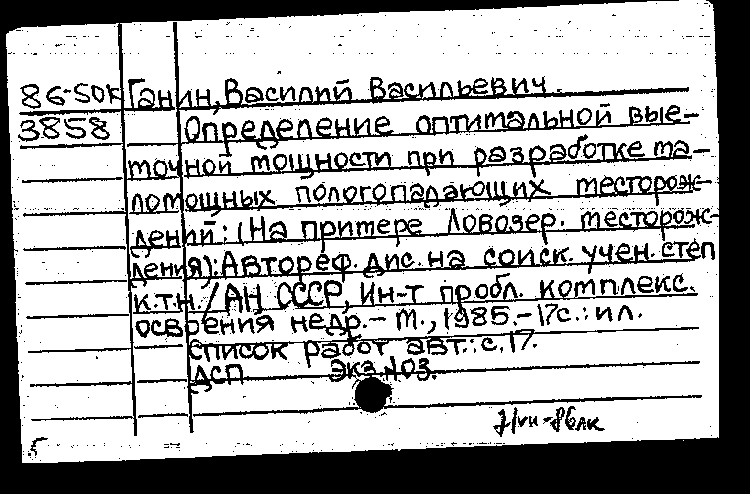 86-50к Ганин, Василий Васильевич.
3858 Определение оптимальной вые-
точной мощности при разработке ма-
ломощных пологопадающих месторож-
дений: (На примере Ловозер. месторож-
дения): Автореф. дис. на соиск. учен. степ
к.т.н. / АН СССР, Ин-т пробл. комплекс.
освоения недр. - М., 1985. - 17с.: ил.
Список работ авт.: с. 17.
ДСП Экз. №03.